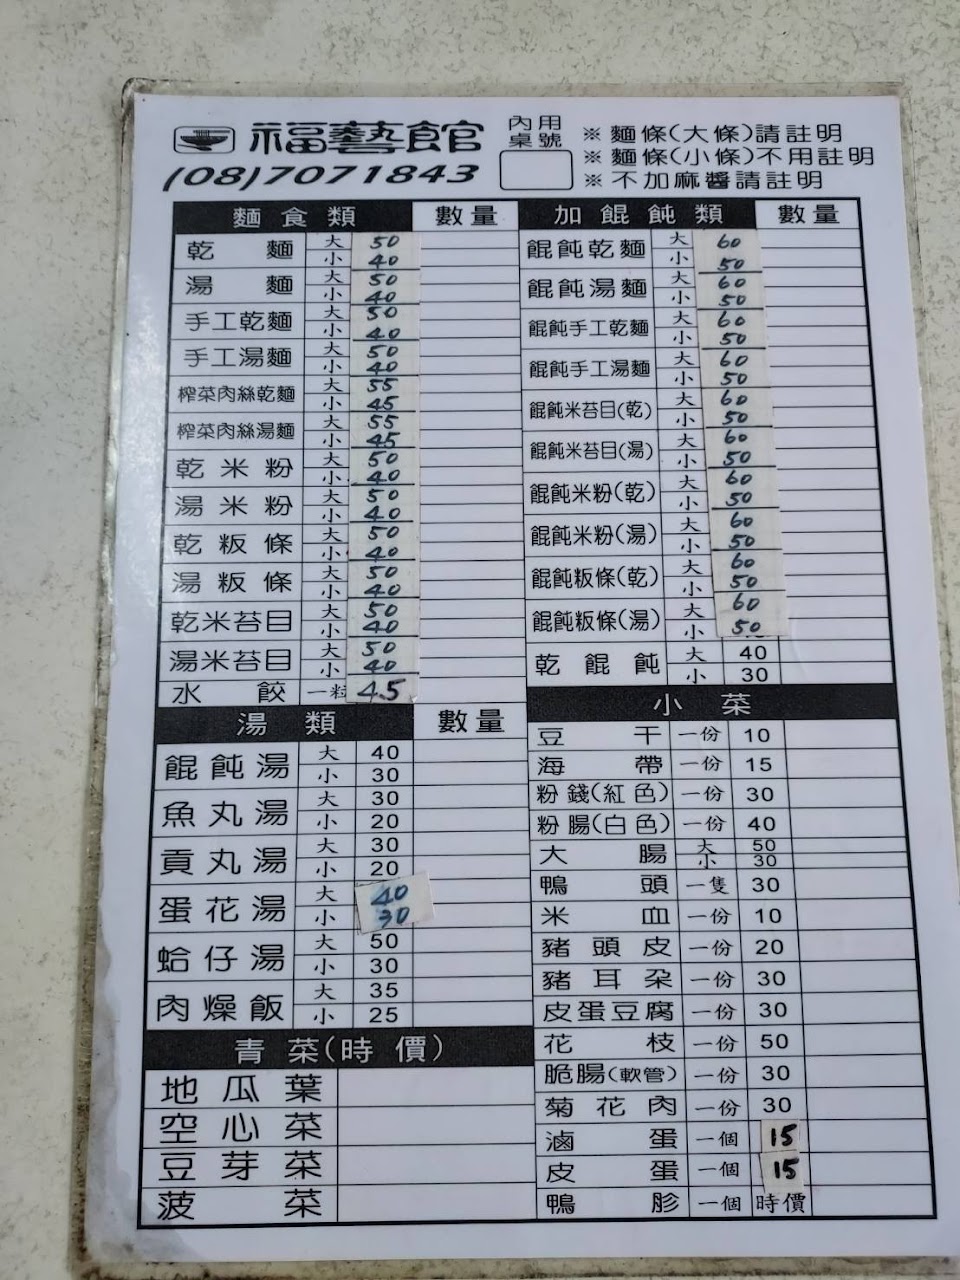 福藝館
(08)7071843
內用
桌號
※ 麵條(大條)請註明
※ 麵條(小條)不用註明
※ 不加麻醬請註明
麵食類 數量
乾麵 大 50
小 40
湯麵 大 50
小 40
手工乾麵 大 50
小 40
手工湯麵 大 50
小 40
榨菜肉絲乾麵 大 55
小 45
榨菜肉絲湯麵 大 55
小 45
乾米粉 大 50
小 40
湯米粉 大 50
小 40
乾粄條 大 50
小 40
湯粄條 大 50
小 40
乾米苔目 大 50
小 40
湯米苔目 大 50
小 40
水餃 一粒 4.5
湯類 數量
餛飩湯 大 40
小 30
魚丸湯 大 30
小 20
貢丸湯 大 30
小 20
蛋花湯 大 40
小 30
蛤仔湯 大 50
小 30
肉燥飯 大 35
小 25
青菜(時價)
地瓜葉
空心菜
豆芽菜
菠菜
加餛飩類 數量
餛飩乾麵 大 60
小 50
餛飩湯麵 大 60
小 50
餛飩手工乾麵 大 60
小 50
餛飩手工湯麵 大 60
小 50
餛飩米苔目(乾) 大 60
小 50
餛飩米苔目(湯) 大 60
小 50
餛飩米粉(乾) 大 60
小 50
餛飩米粉(湯) 大 60
小 50
餛飩粄條(乾) 大 60
小 50
餛飩粄條(湯) 大 60
小 50
乾餛飩 大 40
小 30
小菜
豆干 一份 10
海帶 一份 15
粉錢(紅色) 一份 30
粉腸(白色) 一份 40
大腸 大 50
小 30
鴨頭 一隻 30
米血 一份 10
豬頭皮 一份 20
豬耳朶 一份 30
皮蛋豆腐 一份 30
花枝 一份 50
脆腸(軟管) 一份 30
菊花肉 一份 30
滷蛋 一個 15
皮蛋 一個 15
鴨胗 一個 時價